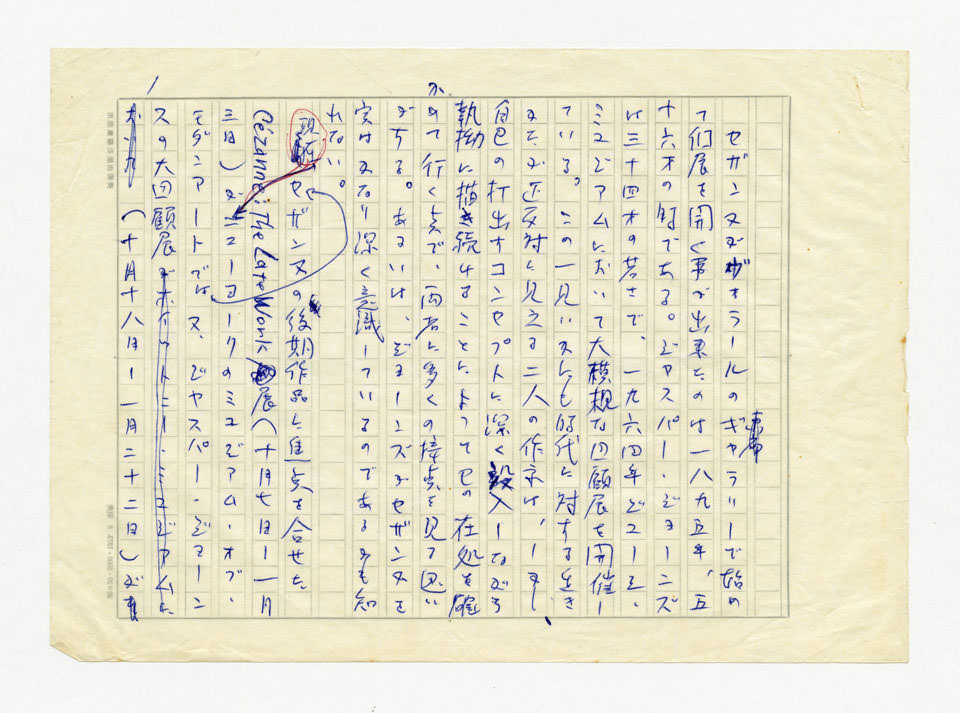 セザンヌがヴォラールのギャラリーで始め
て個展を開く事が出来たのは一八九五年、五
十六才の時である。ジャスパー・ジョーンズ
は三十四才の若さで、一九六四年ジューイッシュ・
ミュジアムにおいて大模規な回顧展を開催し
ている。この一見いかにも時代に対する生き
かたが正反対に見える二人の作家は、しかし、
自己の打出すコンセプトに深く没入しながら
執拗に描き続けることによって己の在処を確
かめて行く点で、両者に多くの接点を見る思い
がする。あるいは、ジョーンズがセザンヌを
実はかなり深く意識しているのであるかも知
れない。
セザンヌの後期作品に焦点を合せた
Cézanne: The Late Work 展(十月七日ー一月
三日)がニューヨークのミュジアム・オブ・
モダンアートでは、又、ジャスパー・ジョーン
ズの大回顧展がホイットニー・ミュジアムに
(十月十八日ー一月二十二日)が